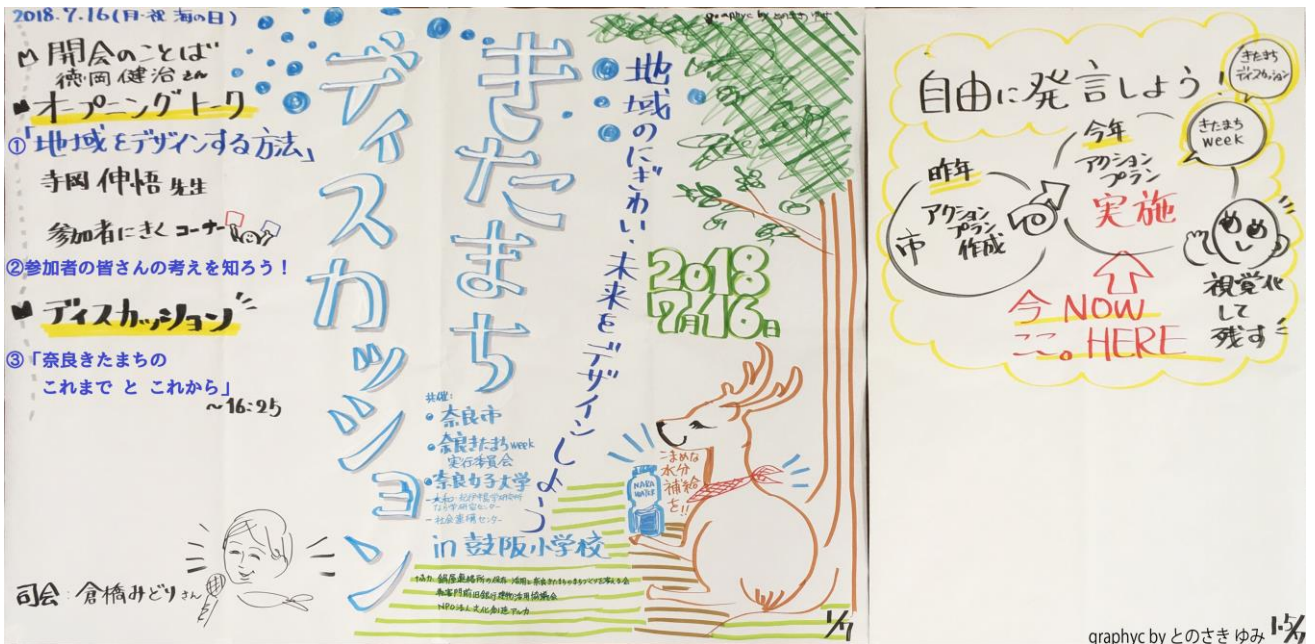 2018.7.16(月・祝 海の日)
開会のことば
徳岡健治さん
オープニングトーク
①「地域をデザインする方法」
寺岡伸悟先生
参加者にきくコーナー
②参加者の皆さんの考えを知ろう！
ディスカッション
③「奈良きたまちの
これまで と これから」
～16:25
司会：倉橋みどりさん
きたまち
ディスカッション
graphyc by とのさき ゆみ
地域のにぎわい、未来をデザインしよう
2018
7月16日
共催：
・奈良市
・奈良きたまちweek
実行委員会
・奈良女子大学
なら学研究センター
－社会連携センター
in 鼓阪小学校
NARA
WATER
こまめな
水分
補給
を!!
協力
NPO法人文化創造アルカ
1/7
自由に発言しよう！
きたまち
ディスカッション
きたまち
week
昨年
アクション
プラン
作成
市
今年
アクション
プラン
実施
今 NOW
ここ。HERE
視覚化
して
残す
graphyc by とのさき ゆみ
1.5/7